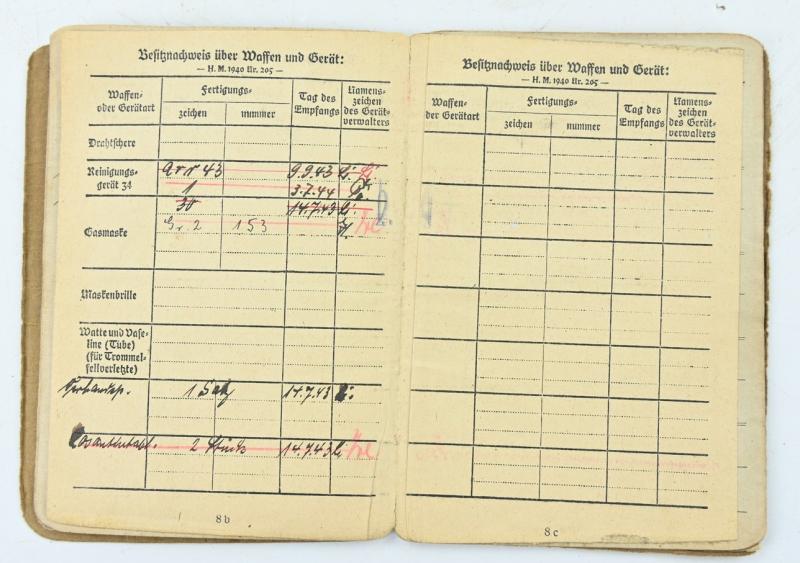 Besitznachweis über Waffen und Gerät:
— H. M. 1940 Nr. 205 —
Waffen-
oder Gerätart
Fertigungs-
zeichen
nummer
Tag des
Empfangs
Namens-
zeichen
des Gerät-
verwalters
Drahtschere
Reinigungs-
gerät 34
arr 43 9.9.43
1 3.7.44
30 14.7.43
Gasmaske
Gr. 2 153
Maskenbrille
Watte und Vase-
line (Tube)
(für Trommel-
fellverletzte)
1 Satz 14.7.43
2 Stück 14.7.43
8 b
Besitznachweis über Waffen und Gerät:
— H. M. 1940 Nr. 205 —
Waffen-
oder Gerätart
Fertigungs-
zeichen
nummer
Tag des
Empfangs
Namens-
zeichen
des Gerät-
verwalters
8 c